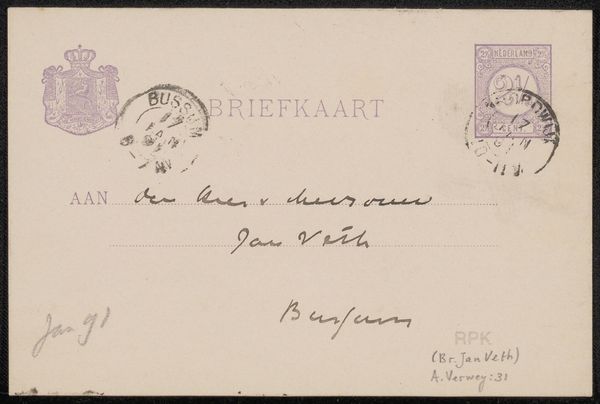 NEDERLAND
2½
CENT
BRIEFKAART
BUSSUM
17
JAN
NOORDWIJK
17
JAN
AAN den Heer & Mevrouw
Jan Veth
Bussum
Jan 91
RPK
(Br. Jan Veth)
A. Verwey: 31